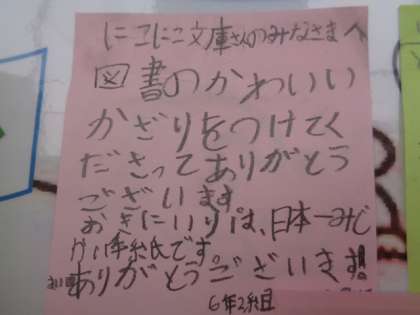 にこにこ文庫さんのみなさまへ
図書のかわいい
かざりをつけてく
ださってありがとう
ございます
おきにいりは、日本一みじ
かい手紙氏です。
ありがとうございます!
6年2組